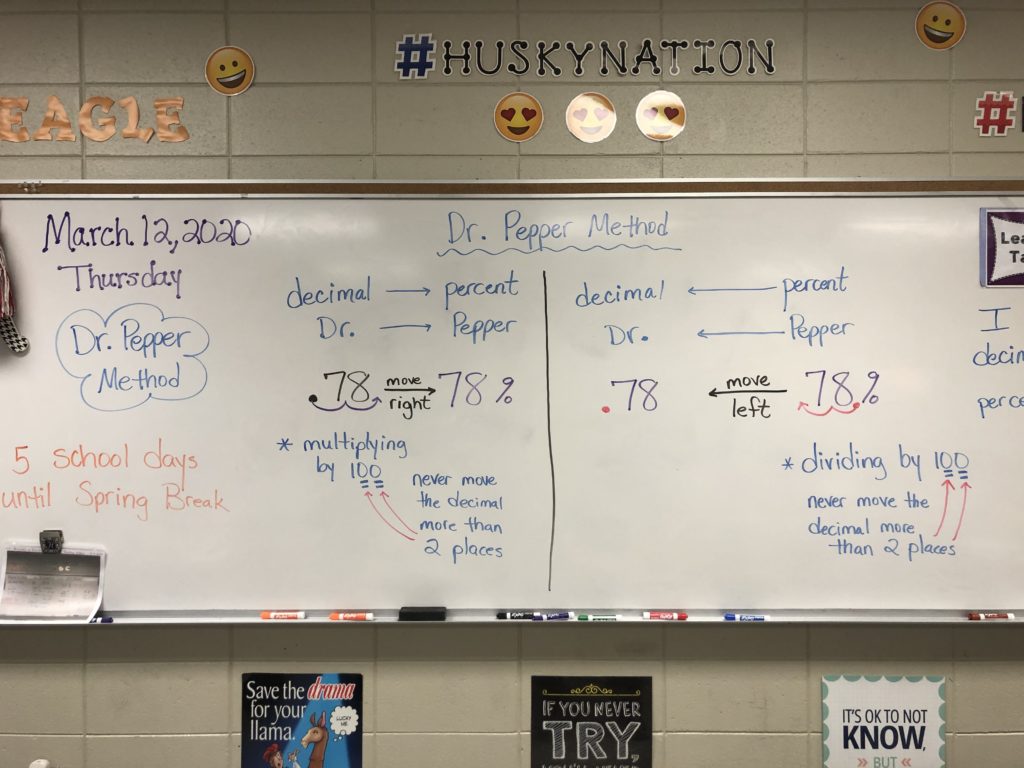 #HUSKYNATION
EAGLE
#
March 12, 2020
Thursday
Dr. Pepper
Method
5 school days
until Spring Break
Dr. Pepper Method
decimal → percent
Dr. → Pepper
.78 move right → 78%
* multiplying
by 100
never move
the decimal
more than
2 places
decimal ← percent
Dr. ← Pepper
.78 ← move left 78%
* dividing by 100
never move the
decimal more
than 2 places
I
Save the drama
for your
llama.
LUCKY
ME.
IF YOU NEVER
TRY,
IT'S OK TO NOT
KNOW,
>> BUT <<
EXPO